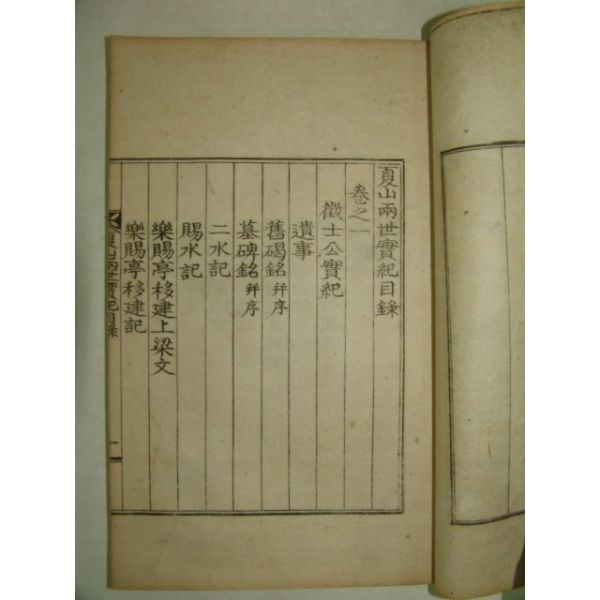 夏山兩世實紀目錄
卷之一
徵士公實紀
遺事
舊碣銘 幷序
墓碑銘 幷序
二水記
賜水記
樂賜亭移建上梁文
樂賜亭移建記
夏山兩世實紀目錄
一